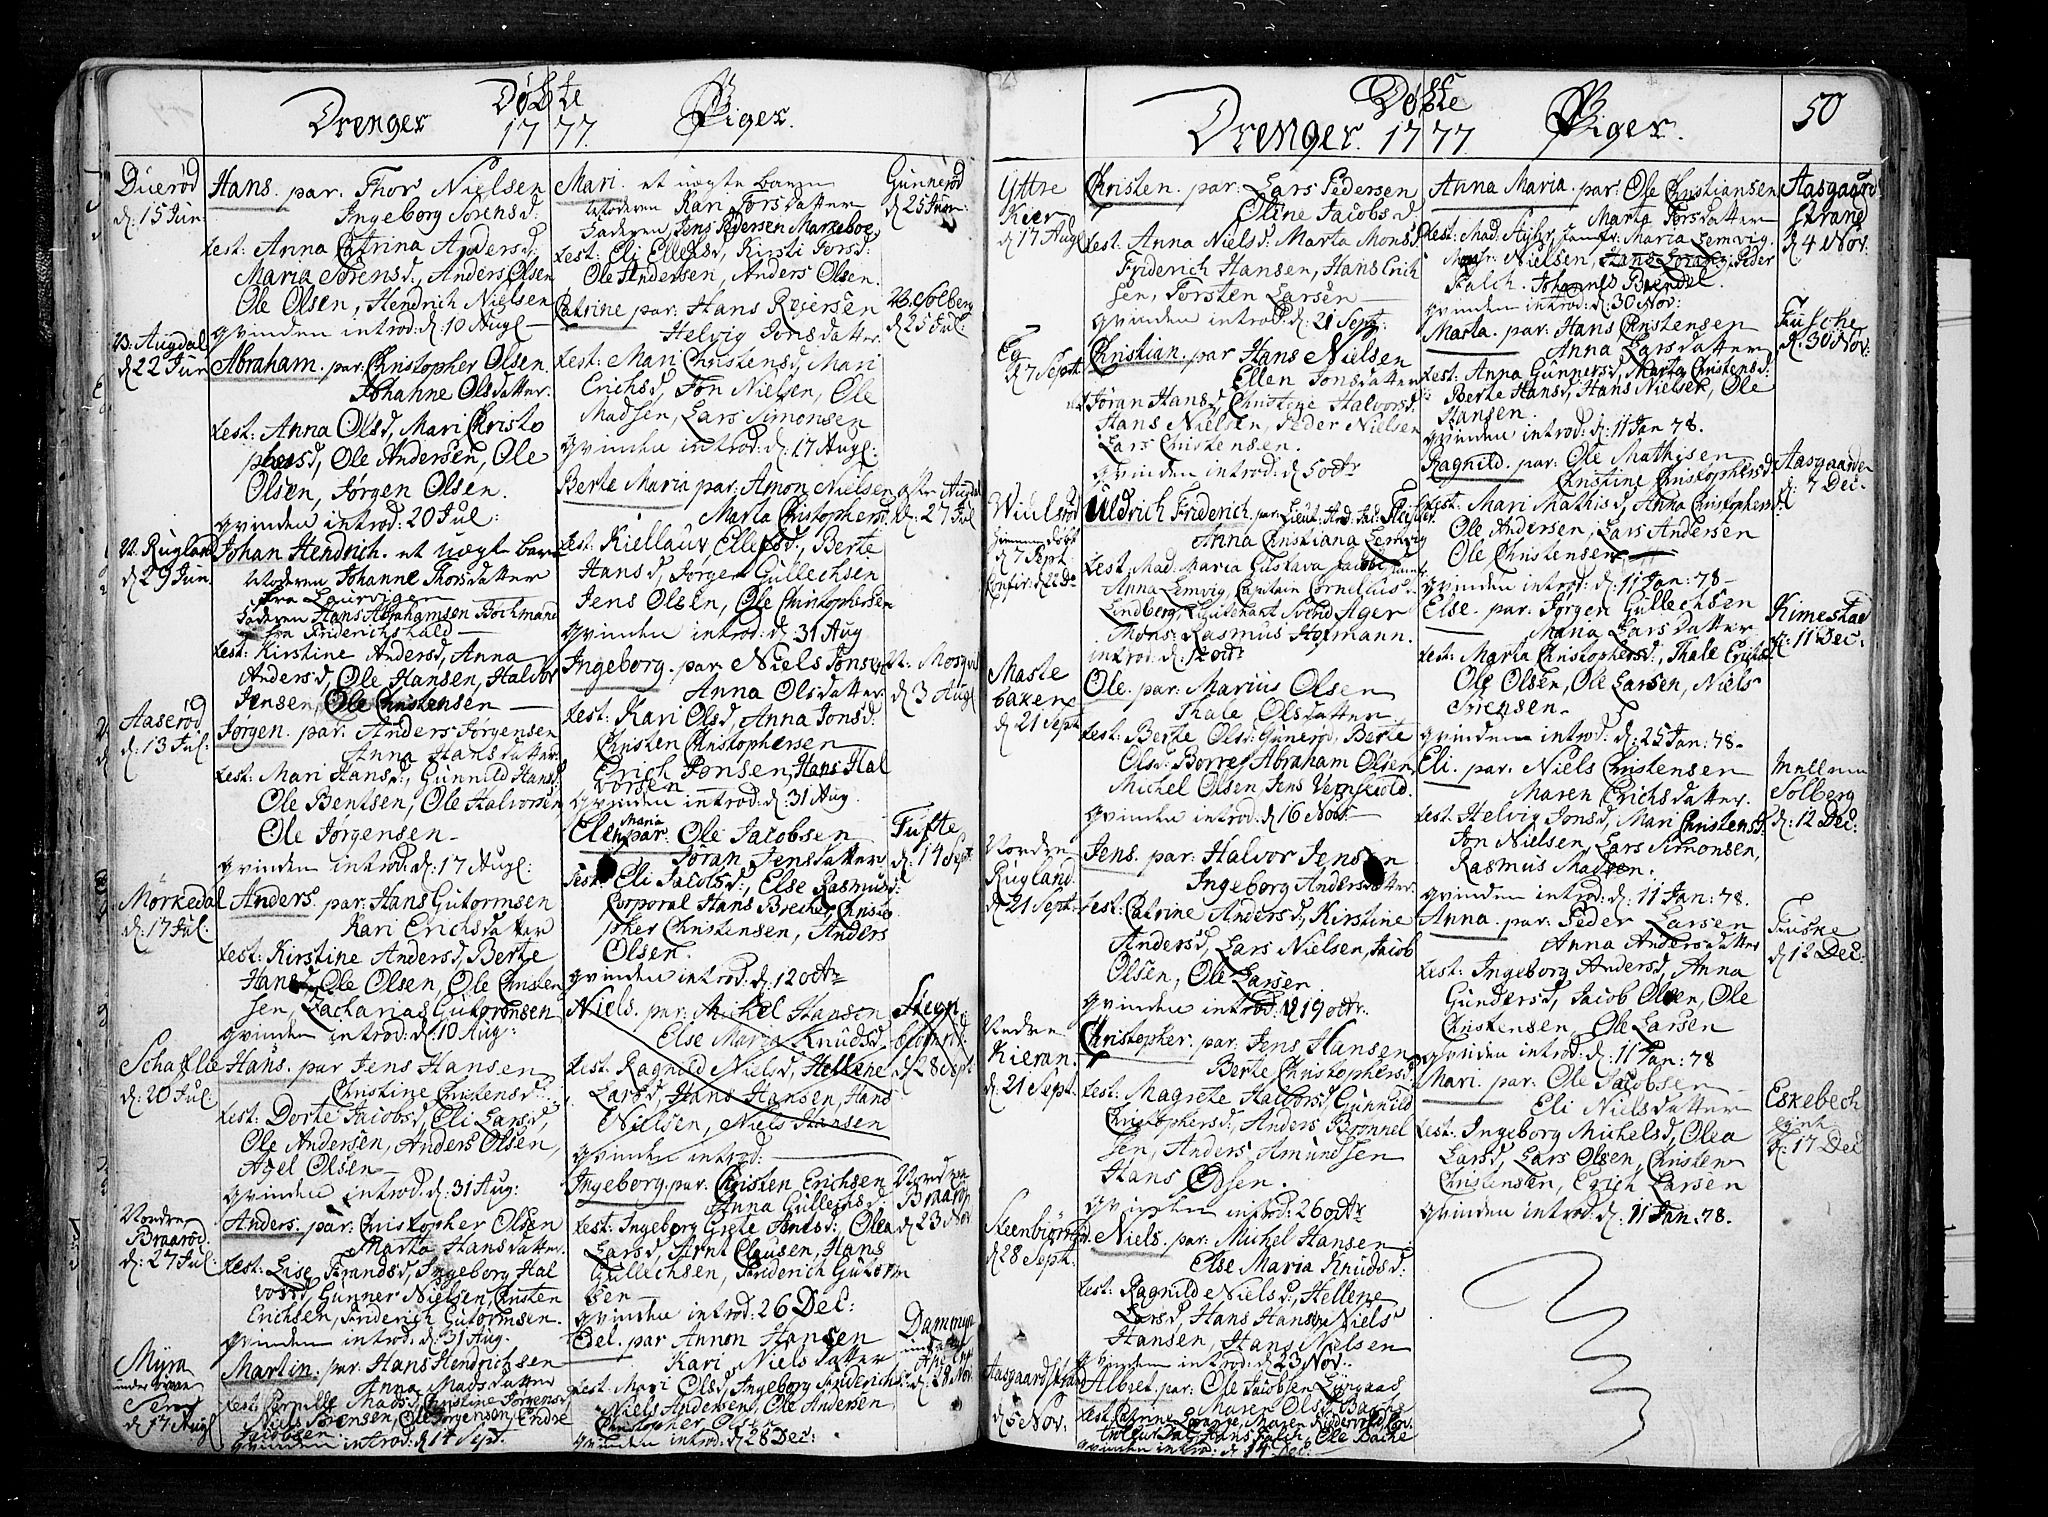 Døbte
Drenger 1777. Piger.
Duerød
d: 15 Jun:
Hans. par: Thor Nielsen
Ingeborg Sørensd:
test: Anna Catrina Andersd:
Maria Sørensd, Anders Olsen
Ole Olsen, Hendrich Nielsen
qvinden introd: d: 10 Augl
N. Augdal
d 22 Jun
Abraham. par: Christopher Olsen
Johanne Olsdatter.
test: Anna Olsd, Mari Christo
phersd, Ole Andersen, Ole
Olsen, Jørgen Olsen.
qvinden introd: 20 Jul:
N. Rugland
d 29 Jun.
Johan Hendrich. et uægt barn
Moderen Johanne Thorsdatter
fra Laurvigen
Faderen Hans Abrahamsen Bochmann
fra Friderichshald
test: Kirstine Andersd, Anna
Andersd, Ole Hansen, Halvor
Jensen, Ole Christensen
Aaserød
d: 13 Jul:
Jørgen. par: Anders Jørgensen
Anna Hansdatter.
test: Mari Hansd:, Gunnild Hansd
Ole Bentsen, Ole Halvorsen
Ole Jørgensen
qvinden introd: d: 17 Augl:
Mørkedal
d: 17 Jul:
Anders. par: Hans Gutormsen
Kari Erichsdatter
test: Kirstine Andersd, Berte
Hansd, Ole Olsen, Ole Christen
sen, Zacharias Gutormsen
qvinden introd: d: 10 Aug:
Schafle
d: 20 Jul
Hans. par Jens Hansen
Christine Christensd:
test: Dorte Jacobsd, Eli Larsd,
Ole Andersen, Anders Olsen,
Axel Olsen
qvinden introd: d: 31 Aug:
Nordre
Braarød
d: 27 Jul:
Anders. par: Christopher Olsen
Marta Hansdatter.
test: Lise Frandsd, Ingeborg Hal
vorsd, Gunner Nielsen, Christen
Erichsen, Friderich Gutormsen
qvinden introd: d: 31 Aug.
Myra
d 17 Augl
Martin. par: Hans Hendrichsen
Anna Madsdatter
test: Pernille Madsd, Christine Jørgensd
Niels Sørensen, Ole Jørgensen, Endre
Jacobsen.
qvinden introd: d 14 Sept.
Mari. et uægte barn
Moderen Kari Torsdatter
Faderen Jens Pedersen Markeboe
test: Eli Ellefsd, Kirsti Torsd:
Ole Andersen, Anders Olsen.
Gunnerød
d 25 Jun:
Catrine par: Hans Reiersen
Helvig Jonsdatter.
test: Mari Christensd, Mari
Erichsd, Jon Nielsen, Ole
Madsen, Lars Simonsen
qvinden introd: d: 17 Augl:
N. Solberg
d 25 Jul:
Berte Maria par: Amon Nielsen
Marta Christophersd.
test: Kiellauv Ellefsd:, Berte
Hansd, Jørgen Gullechsen
Jens Olsen, Ole Christophersen
qvinden introd: d: 31 Aug
østre Augdal
d: 27 Jul
Ingeborg. par: Niels Jonsen
Anna Olsdatter
test: Kari Olsd, Anna Jonsd:
Christen Christophersen
Erich Jonsen, Hans Hal
vorsen
qvinden introd: d: 31 Aug.
d 3 Augl
Ellen Maria par: Ole Jacobsen
Jøran Jensdatter
test: Eli Jacobsd:, Else Rasmusd:
Corporal Hans Brecke, Christo
pher Christensen, Anders
Olsen.
qvinden introd: d. 12 octr
Tufte
d: 14 Sept:
Niels. par: Michel Hansen
Else Maria Knudsd.
test: Ragnild Nielsd, Hellene
Larsd, Hans Hansen, Hans
Nielsen, Niels Hansen
qvinden introd:
d 28 Sept
Ingeborg. par: Christen Erichsen
Anna Gullechsd:
test: Ingeborg Grete Jensd:, Olea
Larsd, Arnt Clausen, Hans
Gullechsen, Friderich Gutorm
sen
qvinden introd: 26 Dec:
Nordre
Braarø
d 23 Nov
Edel. par Annon Hansen
Kari Nielsdatter
test. Mari Olsd, Ingeborg Friderichsd.
Niels Andersen, Ole Andersen
Christopher Olsen
qvinden introd: d 28 Dec:
Dammyr
Døbte
Drenger. 1777. Piger. 50
Yttre
Kier
d 17 Augl
Christen. par: Lars Pedersen
Oline Jacobsd
test. Anna Nielsd: Marta Monsd
Friderich Hansen, Hans Erich
sen, Torsten Larsen
qvinden introd: d: 21 Sept:
Eg
d 7 Sept
Christian. par Hans Nielsen
Ellen Jonsdatter
test Jøran Hansd, Christine Halvorsd:
Hans Nielsen, Peder Nielsen
Lars Christensen.
qvinden introd: d 5 octr
d 7 Sept
Confir: d 22 Do
Uldrich Friderich. par: Lieut: And: Jac: Fleischer
Anna Christiana Lemvig
test. Mad. Maria Gustava Jacobi,
Anna Lemvig, Capitain Cornelius
Lindberg, Lieutenant Svend Ager
Mons: Rasmus Hofmann.
introd: d: 12 octr
Maste
baken
d 21 Sept
Ole. par: Marius Olsen
Thale Olsdatter
test: Berte Olsd: Gunerød, Berte
Olsd: Borre, Abraham Olsen
Michel Olsen, Jens Vernskiold.
qvinden introd: d 16 Nov:
Nordre
Rugland
d 21 Sept
Jens. par: Halvor Jensen
Ingeborg Andersdatter.
test: Catrine Andersd, Kirstine
Andersd, Lars Nielsen, Jacob
Olsen, Ole Larsen
qvinden introd: d 19 octr.
Nedre
Kieran.
d: 21 Sept.
Christopher. par: Jens Hansen
Berte Christophersd
test: Magrete Halvorsd, Gunnild
Christophersd:, Anders Brønnel
sen, Anders Amundsen
Hans Olsen.
qvinden introd: 26 octr
Steenbiørnrød
d 28 Sept.
Niels. par: Michel Hansen
Else Maria Knudsd:
test: Ragnilde Nielsd:, Hellene
Larsd, Hans Hansen, Niels
Hansen, Hans Nielsen
qvinden introd: d 23 Nov.
Aasgaardstrand
d 5 Nov.
Albret. par: Ole Jacobsen Lyngaas
Maren Olsd Bache
qvinden introd: d 14 Dec:
Anna Maria. par: Ole Christiansen
Marta Torsdatter
test: Mad. Fischer, Jomfr: Maria Lemvig.
Nielsen, Hans Lorang, Peder
Falch. Johannes Brendel.
qvinden introd: d: 30 Nov:
Aasgaard
strand
d 4 Nov:
Marta. par: Hans Christensen
Anna Larsdatter
test: Anna Gunnersd, Marta Christensd:
Berte Hansd, Hans Nielsen, Ole
Hansen.
qvinden introd: d: 11 Jan 78.
Fusche
d. 30 Nov:
Ragnild. par: Ole Mathisen
Christine Christophersd
test: Mari Mathisd, Anna Christophersd:
Ole Andersen, Lars Andersen
Ole Christensen
qvinden introd: d: 11 Jan: 78
Aasgaarden
d: 7 Dec
Else. par: Jørgen Gullechsen
Maria Larsdatter
test: Maria Christophersd:, Thale Erichsd
Ole Olsen, Ole Larsen, Niels
Svensen.
qvinden introd: d: 25 Jan: 78.
Kimestad
d: 11 Dec:
Eli. par: Niels Christensen
Maren Erichsdatter.
test: Helvig Jonsd, Mari Christensd
Jon Nielsen, Lars Simonsen,
Rasmus Madsen.
qvinden introd: d: 11 Jan: 78.
Mellum
Solberg
d: 12 Dec:
Anna. par: Peder Larsen
Anna Andersdatter
test: Ingeborg Andersd, Anna
Gundersd, Jacob Olsen, Ole
Christensen, Ole Larsen
qvinden introd: d: 11 Jan: 78
Fuske
d 12 Dec:
Mari. par: Ole Jacobsen
Eli Nielsdatter
test: Ingeborg Michelsd, Olea
Larsd, Lars Olsen, Christen
Christensen, Erich Larsen
qvinden introd: d: 11 Jan. 78.
Eskebech
d: 17 Dec